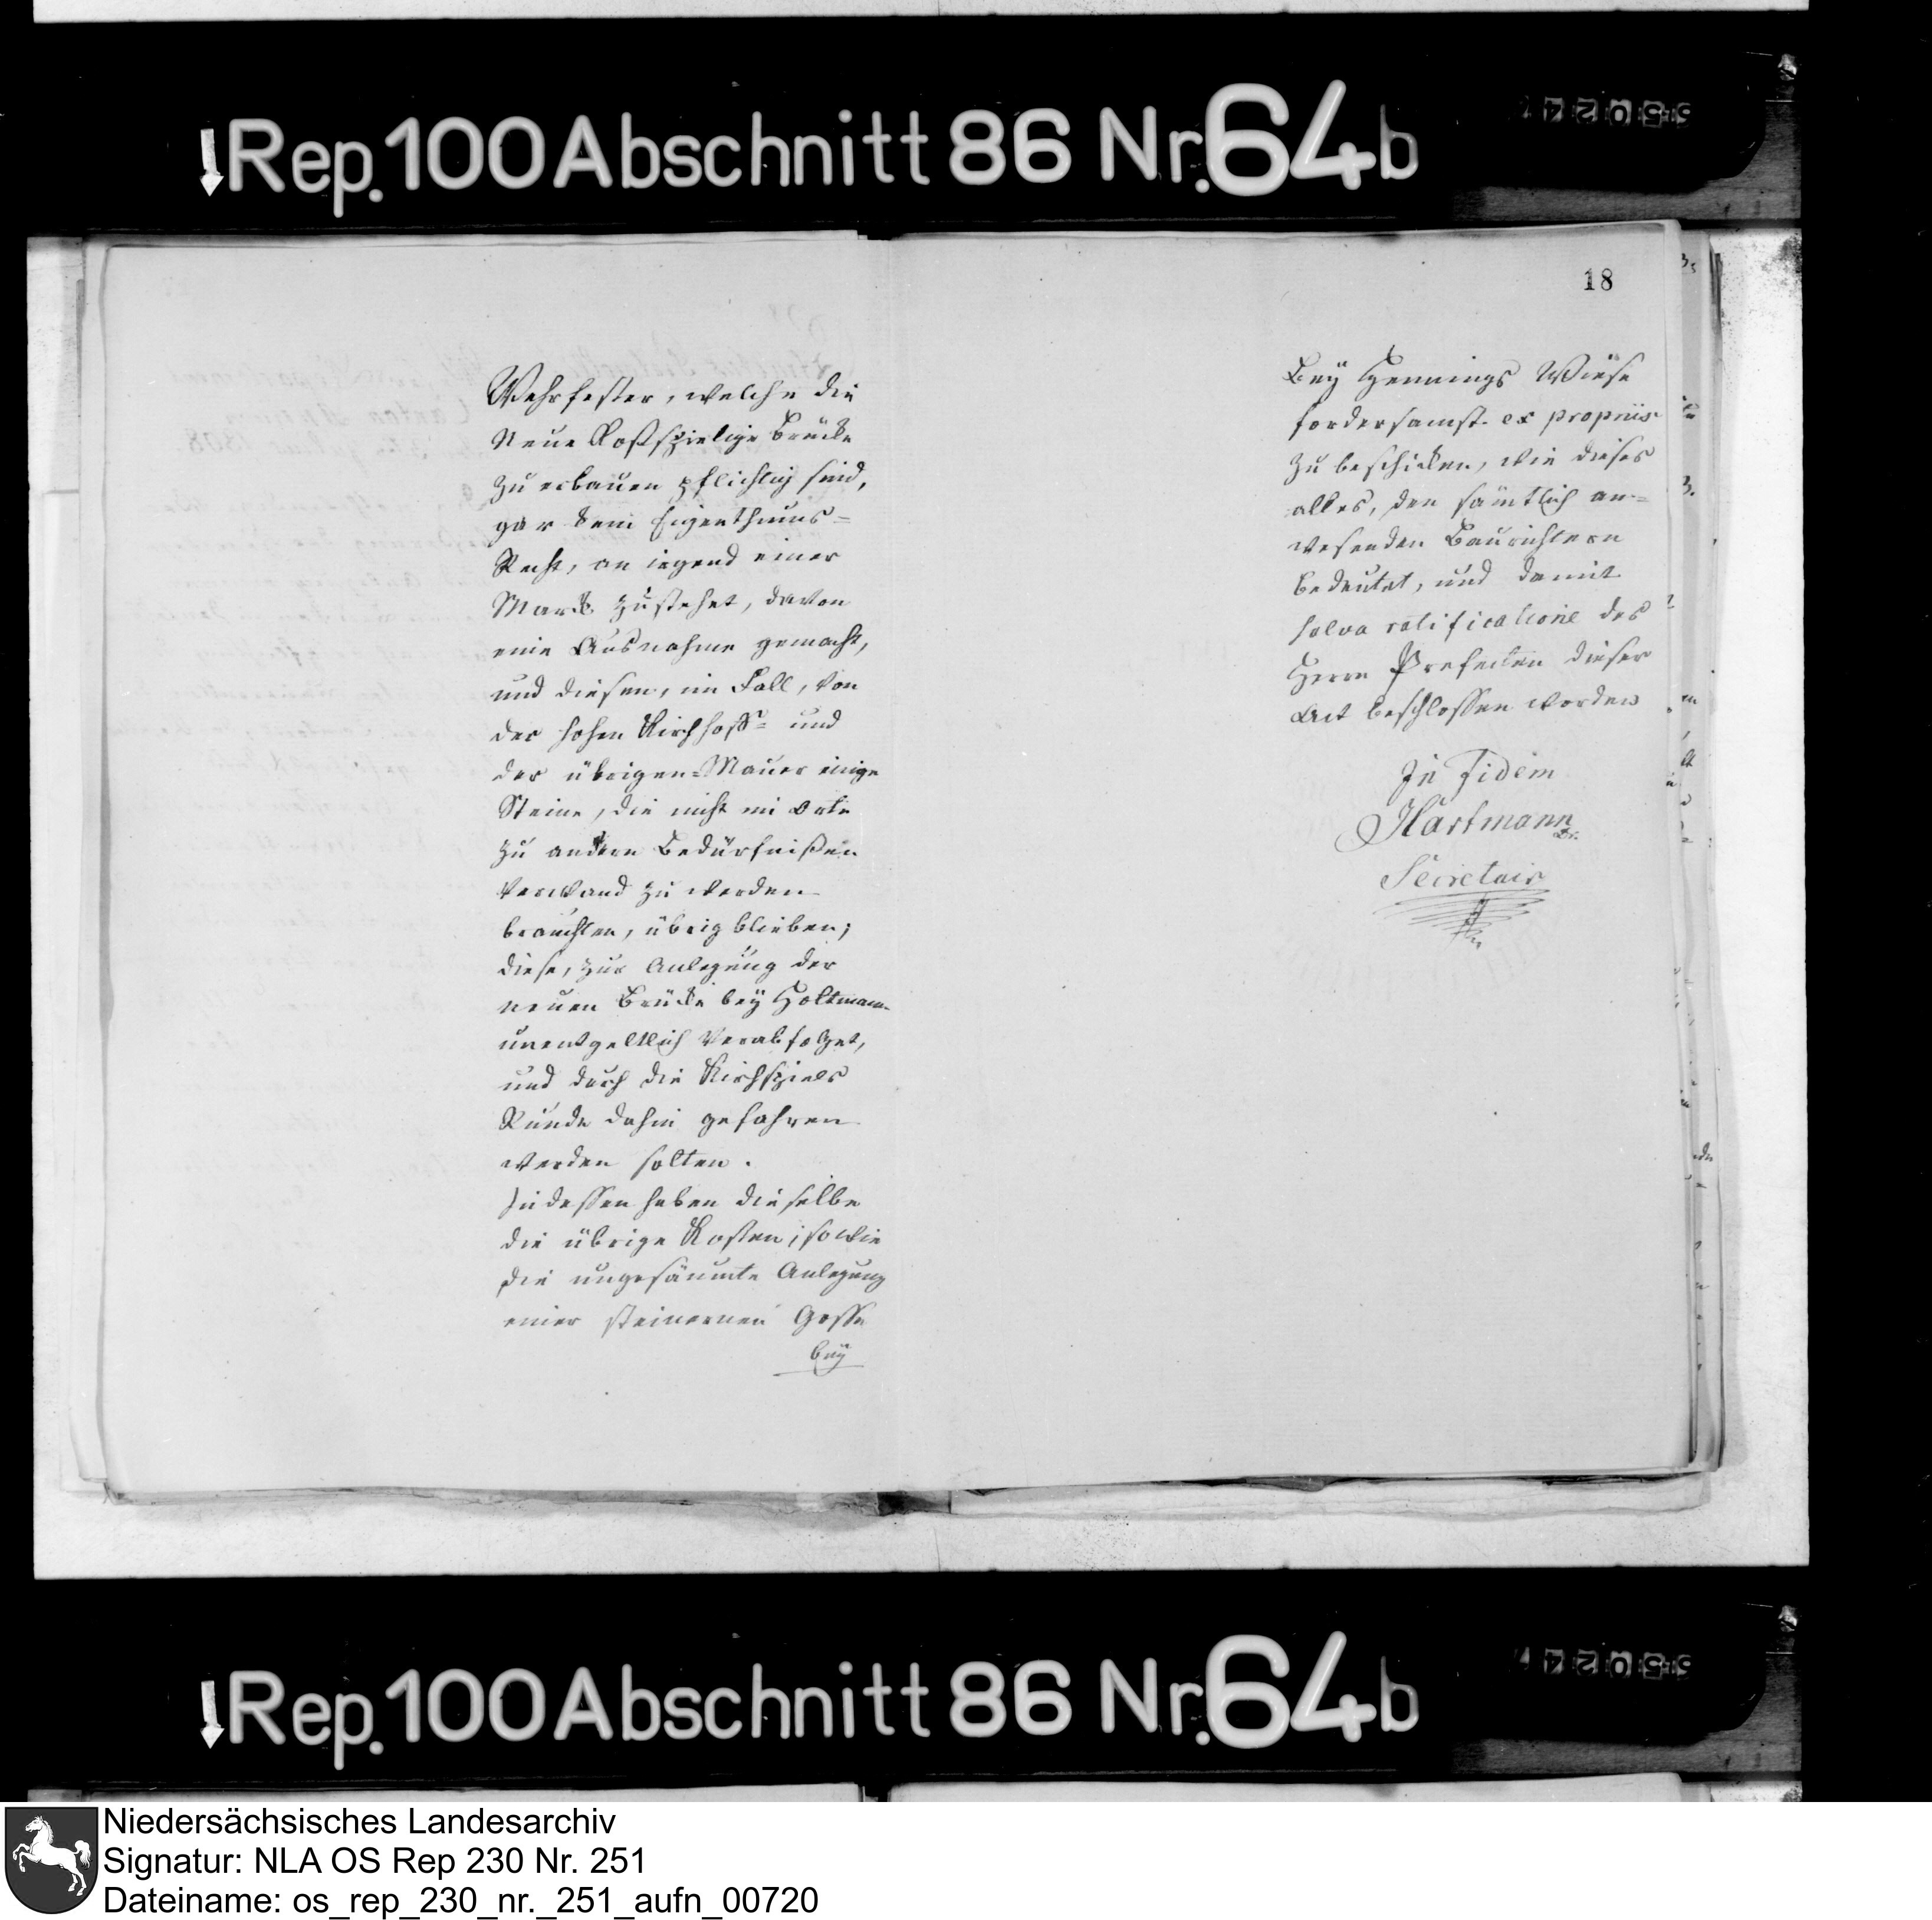 Rep. 100 Abschnitt 86 Nr. 64b
18
Wehrfester, welche die
Neue Kostspielige Brücke
zu erbauen pflichtig sind,
gar kein Eigenthums=
Recht, an irgend einer
Mark zustehet, davon
eine Ausnahme gemacht,
und diesen, im Fall, von
der hohen Kirchhoffs= und
der übrigen=Mauer einige
Steine, die nicht im Orte
zu andern Bedürfnißen
verwand zu werden
brauchten, übrig blieben;
diese, zur Anlegung der
neuen Brücke bey Holtmann
unentgeltlich verabfolget,
und durch die Kirchspiels
Runde dahin gefahren
werden solten.
Indessen haben dieselbe
die übrige Kosten, sowie
die ungesäumte Anlegung
einer steinernen Gosse
bey
Bey Hennings Wiese
fordersamst ex propriis
zu beschicken, wie dieses
alles, den sämtlich an=
wesenden Baurichtern
bedeutet, und damit
salva ratificatione des
Herrn Prefecten dieser
Act beschlossen worden
In Fidem
Hartmann Dr.
Secretair
Rep. 100 Abschnitt 86 Nr. 64b
Niedersächsisches Landesarchiv
Signatur: NLA OS Rep 230 Nr. 251
Dateiname: os_rep_230_nr._251_aufn_00720